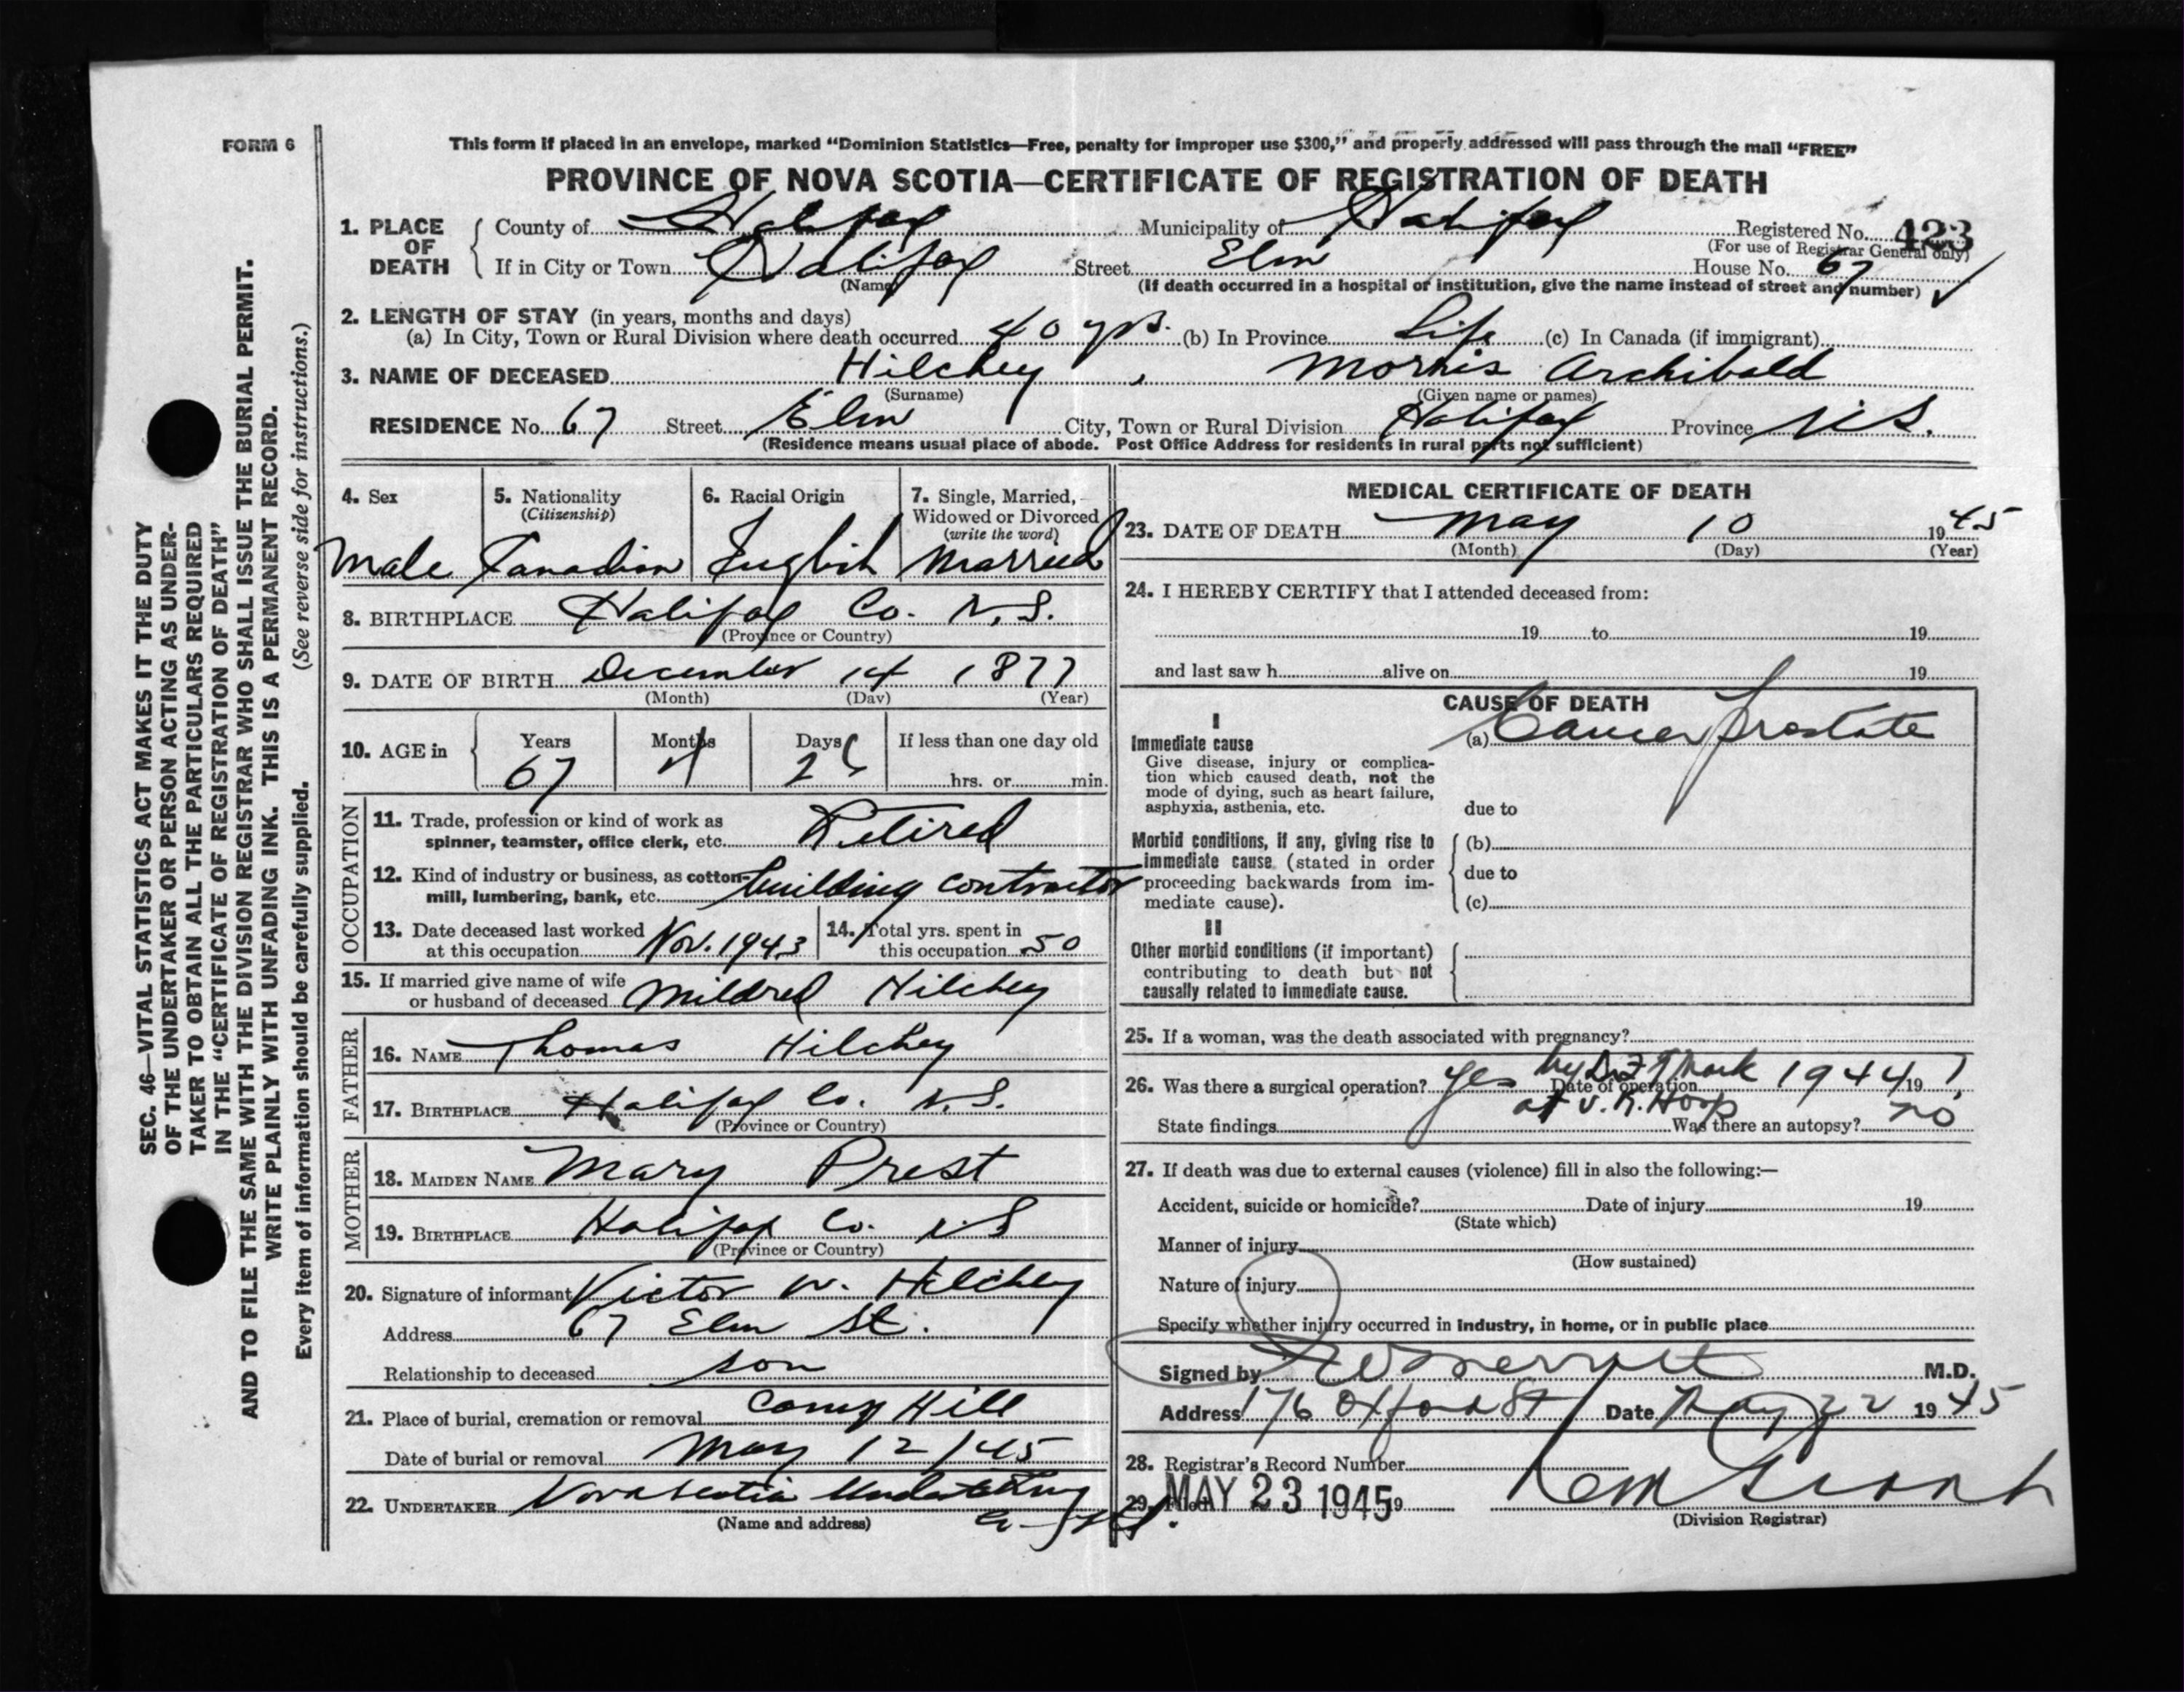 FORM 6
This form if placed in an envelope, marked “Dominion Statistics—Free, penalty for improper use $300,” and properly addressed will pass through the mail “FREE”
PROVINCE OF NOVA SCOTIA—CERTIFICATE OF REGISTRATION OF DEATH
1. PLACE OF DEATH County of Halifax Municipality of Halifax Registered No. 423
(For use of Registrar General only)
If in City or Town Halifax Street Elm House No. 67
(Name) (If death occurred in a hospital or institution, give the name instead of street and number)
2. LENGTH OF STAY (in years, months and days)
(a) In City, Town or Rural Division where death occurred 40 yrs. (b) In Province Life (c) In Canada (if immigrant)
3. NAME OF DECEASED Hilchey, Morris Archibald
(Surname) (Given name or names)
RESIDENCE No. 67 Street Elm City, Town or Rural Division Halifax Province N.S.
(Residence means usual place of abode. Post Office Address for residents in rural parts not sufficient)
4. Sex
Male
5. Nationality
(Citizenship)
Canadian
6. Racial Origin
English
7. Single, Married,
Widowed or Divorced
(write the word)
Married
8. BIRTHPLACE Halifax Co. N.S.
(Province or Country)
9. DATE OF BIRTH December 14 1877
(Month) (Day) (Year)
10. AGE in Years Months Days If less than one day old
67 4 26 hrs. or min.
OCCUPATION
11. Trade, profession or kind of work as
spinner, teamster, office clerk, etc. Retired
12. Kind of industry or business, as cotton-
mill, lumbering, bank, etc. building contractor
13. Date deceased last worked
at this occupation Nov. 1943
14. Total yrs. spent in
this occupation 50
15. If married give name of wife
or husband of deceased Mildred Hilchey
FATHER
16. NAME Thomas Hilchey
17. BIRTHPLACE Halifax Co. N.S.
(Province or Country)
MOTHER
18. MAIDEN NAME Mary Prest
19. BIRTHPLACE Halifax Co. N.S
(Province or Country)
20. Signature of informant Victor W. Hilchey
Address 67 Elm St.
Relationship to deceased son
21. Place of burial, cremation or removal Camp Hill
Date of burial or removal May 12/45
22. UNDERTAKER Nova Scotia Undertaking
(Name and address)
MEDICAL CERTIFICATE OF DEATH
23. DATE OF DEATH May 10 1945
(Month) (Day) (Year)
24. I HEREBY CERTIFY that I attended deceased from:
19 to 19
and last saw h alive on 19
CAUSE OF DEATH
I
Immediate cause (a) Cancer Prostate
Give disease, injury or complica-
tion which caused death, not the
mode of dying, such as heart failure,
asphyxia, asthenia, etc. due to
Morbid conditions, if any, giving rise to (b)
immediate cause (stated in order
proceeding backwards from im- due to
mediate cause). (c)
II
Other morbid conditions (if important)
contributing to death but not
causally related to immediate cause.
25. If a woman, was the death associated with pregnancy?
26. Was there a surgical operation? yes by Dr Date of operation 1944 19
at V. G. Hosp
State findings Was there an autopsy? no
27. If death was due to external causes (violence) fill in also the following:—
Accident, suicide or homicide? Date of injury 19
(State which)
Manner of injury
(How sustained)
Nature of injury
Specify whether injury occurred in industry, in home, or in public place
Signed by M.D.
Address 176 Oxford St Date May 22 1945
28. Registrar's Record Number
29. Filed MAY 23 1945 19
(Division Registrar)
SEC. 46—VITAL STATISTICS ACT MAKES IT THE DUTY
OF THE UNDERTAKER OR PERSON ACTING AS UNDER-
TAKER TO OBTAIN ALL THE PARTICULARS REQUIRED
IN THE “CERTIFICATE OF REGISTRATION OF DEATH”
AND TO FILE THE SAME WITH THE DIVISION REGISTRAR WHO SHALL ISSUE THE BURIAL PERMIT.
WRITE PLAINLY WITH UNFADING INK. THIS IS A PERMANENT RECORD.
Every item of information should be carefully supplied. (See reverse side for instructions.)